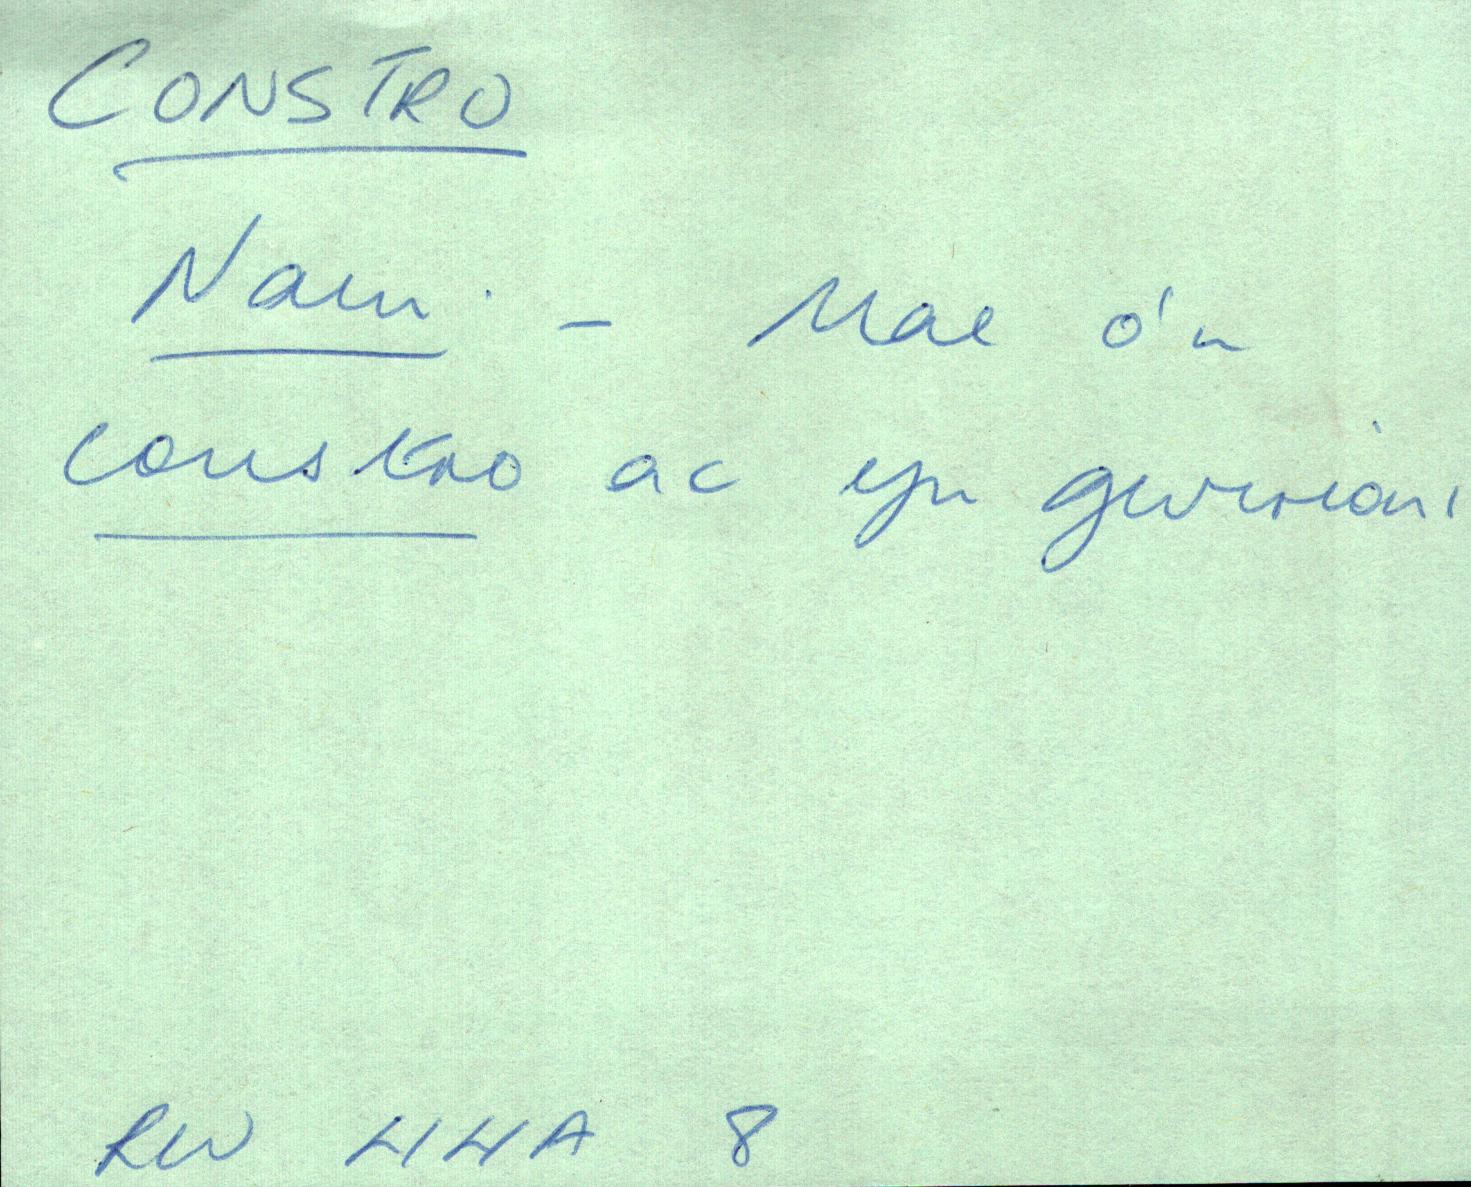 CONSTRO
Naw. - Mae o'n
constro ac yn gwirioni
RW HHA 8